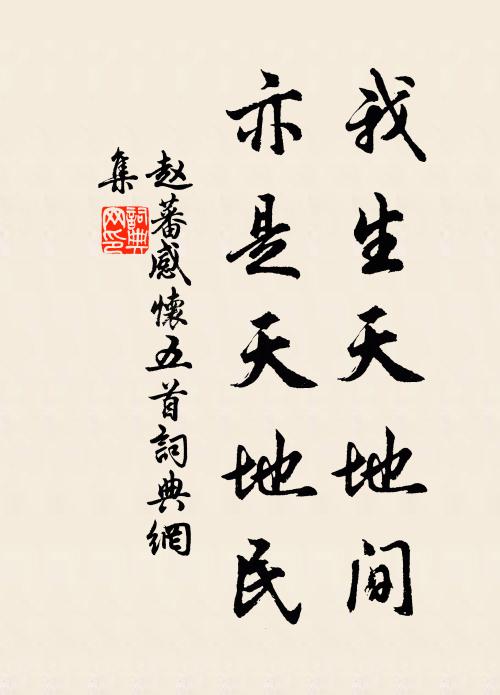 我生天地间
亦是天地民
赵蕃感懷五首詞典網
集
詞典网印